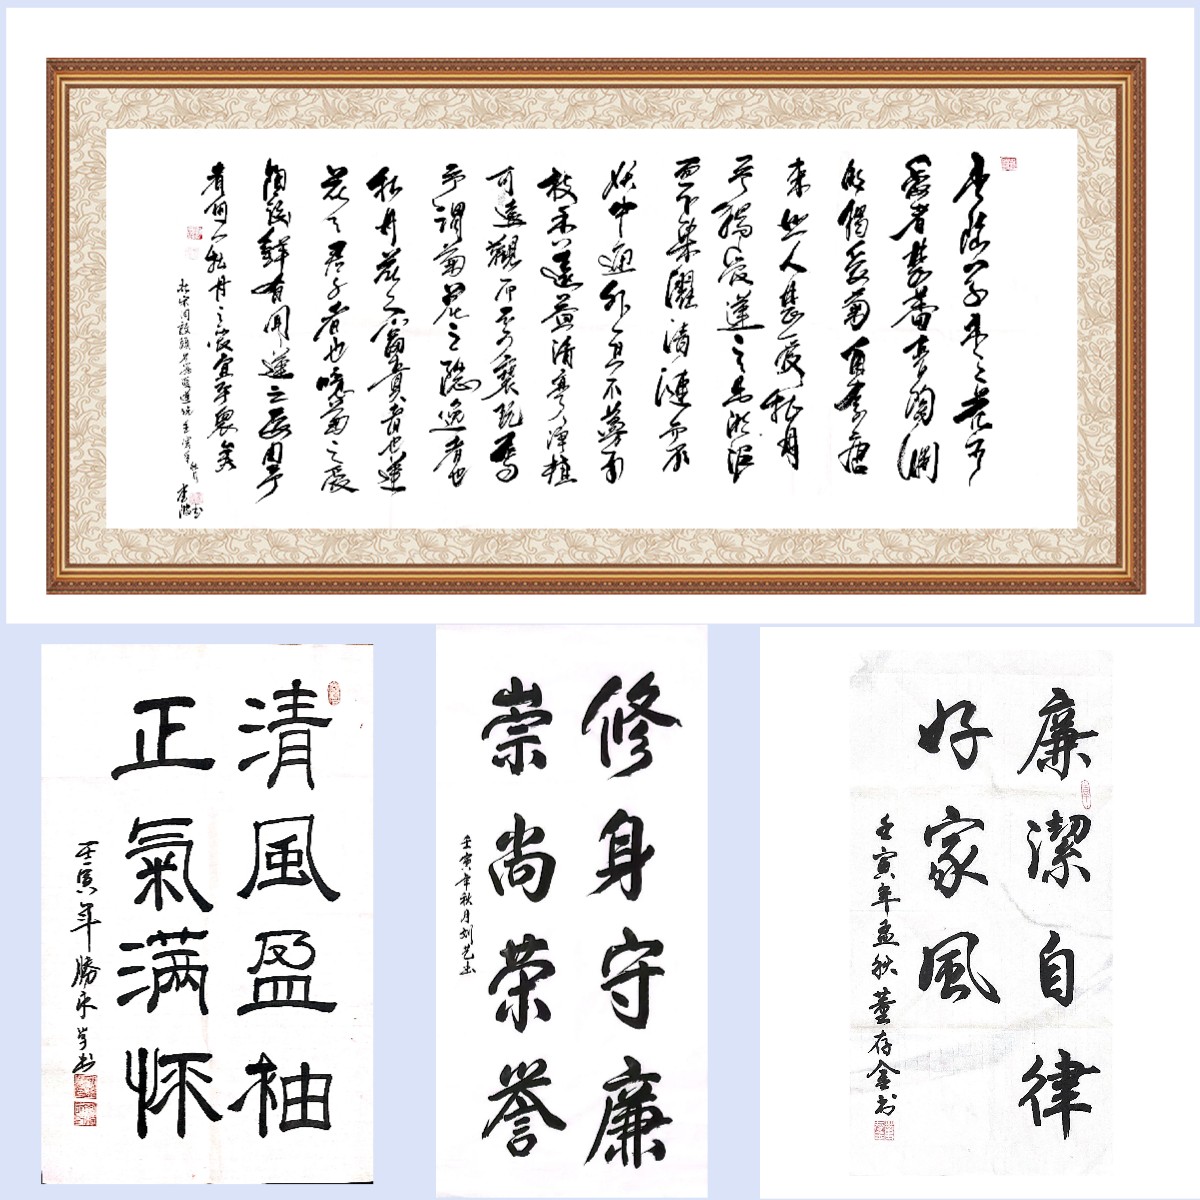 水陸草木之花可
愛者甚蕃晋陶渊
明獨愛菊自李唐
来世人甚愛牡丹
予獨愛蓮之出淤泥
而不染濯清漣而不
妖中通外直不蔓不
枝香遠益清亭亭淨植
可遠觀而不可褻玩焉
予謂菊花之隐逸者也
牡丹花之富貴者也蓮
花之君子者也噫菊之愛
陶後鲜有聞蓮之愛同予
者何人牡丹之愛宜乎衆矣
清風盈袖
正氣满怀
壬寅年勝永
修身守廉
崇尚荣誉
壬寅年秋月刘艺书
廉潔自律
好家風
壬寅年孟秋董存金书